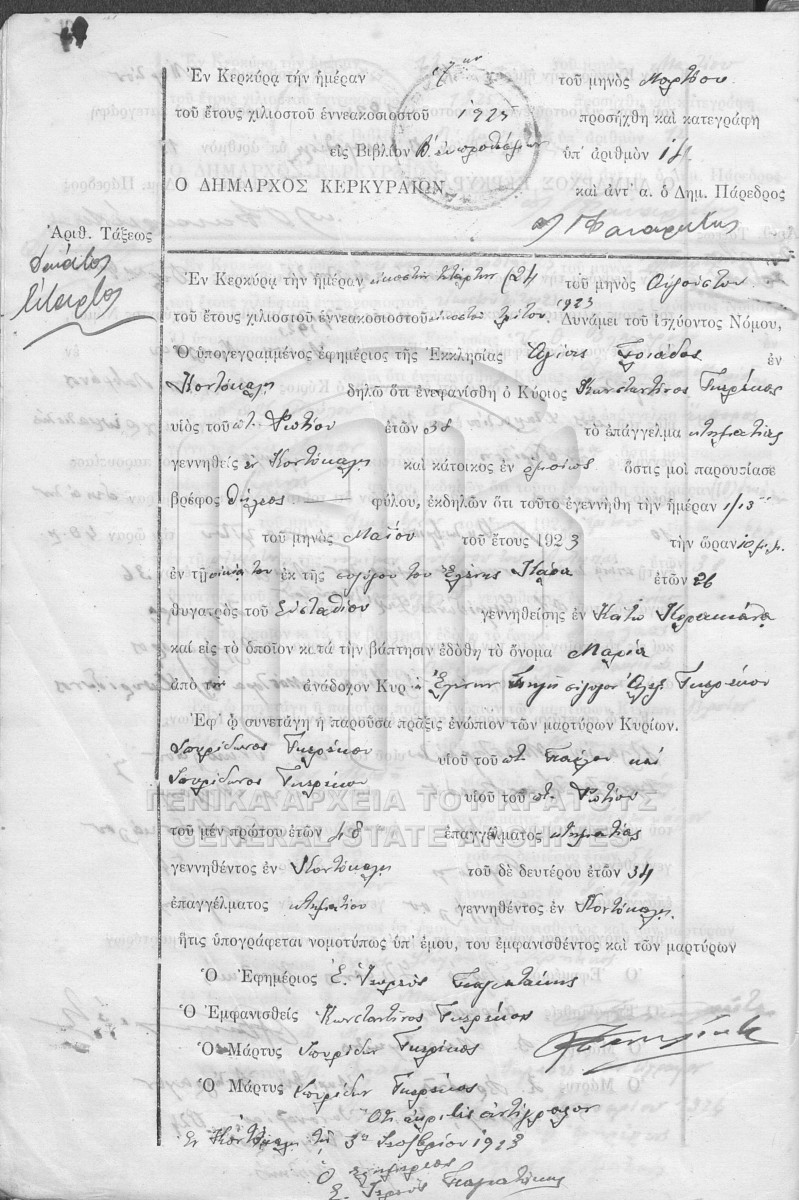 Ἐν Κερκύρᾳ τὴν ἡμέραν τοῦ μηνὸς Μαρτίου
τοῦ ἔτους χιλιοστοῦ ἐννεακοσιοστοῦ 1925 προσήχθη καὶ κατεγράφη
εἰς Βιβλίον ὑπ' ἀριθμὸν 14
Ο ΔΗΜΑΡΧΟΣ ΚΕΡΚΥΡΑΙΩΝ καὶ ἀντ' α. ὁ Δημ. Πάρεδρος
Ἀριθ. Τάξεως
Δέκατος
Τέταρτος
Ἐν Κερκύρᾳ τὴν ἡμέραν εἰκοστὴν τετάρτην (24 τοῦ μηνὸς Αὐγούστου
τοῦ ἔτους χιλιοστοῦ ἐννεακοσιοστοῦ εἰκοστοῦ τρίτου. 1923 Δυνάμει τοῦ ἰσχύοντος Νόμου,
Ὁ ὑπογεγραμμένος ἐφημέριος τῆς Ἐκκλησίας Ἁγίας Τριάδος ἐν
Κοντόκαλι δηλῶ ὅτι ἐνεφανίσθη ὁ Κύριος Κωνσταντῖνος Γκερέκος
υἱὸς τοῦ ποτ. Φωτίου ἐτῶν 38 τὸ ἐπάγγελμα κτηματίας
γεννηθεὶς ἐν Κοντόκαλι καὶ κάτοικος ἐν ὁμοίως ὅστις μοὶ παρουσίασε
βρέφος θήλεος φύλου, ἐκδηλῶν ὅτι τοῦτο ἐγεννήθη τὴν ἡμέραν 1/13
τοῦ μηνὸς Μαΐου τοῦ ἔτους 1923 τὴν ὥραν 10 μ.μ.
ἐν τῇ οἰκίᾳ του ἐκ τῆς συζύγου του Ἑλένης ἐτῶν 26
θυγατρὸς τοῦ Εὐσταθίου γεννηθείσης ἐν Κάτω Κορακιάνα
καὶ εἰς τὸ ὁποῖον κατὰ τὴν βάπτησιν ἐδόθη τὸ ὄνομα Μαρία
ἀπὸ τὸν ἀνάδοχον Κυρ Ἑλένην σύζυγον Ἀλεξ Γκερέκου
Ἐφ' ᾧ συνετάγη ἡ παροῦσα πρᾶξις ἐνώπιον τῶν μαρτύρων Κυρίων.
Σπυρίδωνος Γκερέκου υἱοῦ τοῦ ποτ. Παύλου καὶ
Σπυρίδωνος Γκερέκου υἱοῦ τοῦ ποτ. Φωτίου
ΓΕΝΙΚΑ ΑΡΧΕΙΑ ΤΟΥ ΚΡΑΤΟΥΣ
GENERAL STATE ARCHIVES
τοῦ μὲν πρώτου ἐτῶν 48 ἐπαγγέλματος κτηματίας
γεννηθέντος ἐν Κοντόκαλι τοῦ δὲ δευτέρου ἐτῶν 34
ἐπαγγέλματος κτηματίου γεννηθέντος ἐν Κοντόκαλι
ἥτις ὑπογράφεται νομοτύπως ὑπ' ἐμου, του ἐμφανισθέντος καὶ τῶν μαρτύρων
Ὁ Ἐφημέριος Σ. Ἱερεὺς
Ὁ Ἐμφανισθεὶς Κωνσταντῖνος Γκερέκος
Ὁ Μάρτυς Σπυρίδων Γκερέκος
Ὁ Μάρτυς Σπυρίδων Γκερέκος
Ὅτι ἀκριβὲς ἀντίγραφον
Ἐν Κοντόκαλι τῇ 3ῃ 1923
Ὁ ἐφημέριος
Σ. Ἱερεὺς